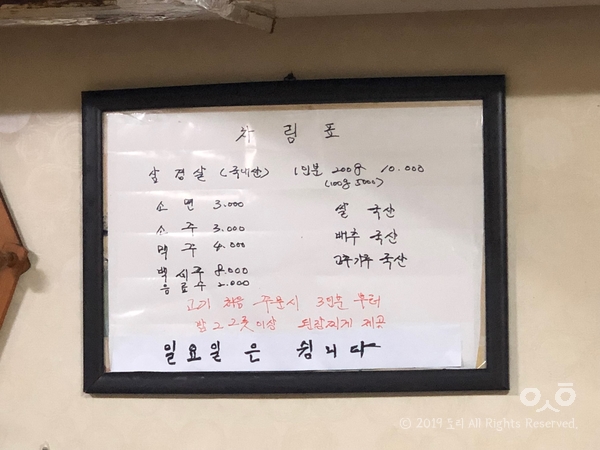 차림표
삼겹살 (국내산) 1인분 200g 10.000
(100g 5000)
소면 3.000
소주 3.000
맥주 4.000
백세주 8.000
음료수 2.000
쌀 국산
배추 국산
고추가루 국산
고기 처음 주문시 3인분 부터
밥 2그릇이상 된장찌게 제공
일요일은 쉽니다
ⓒ 2019 도리 All Rights Reserved.